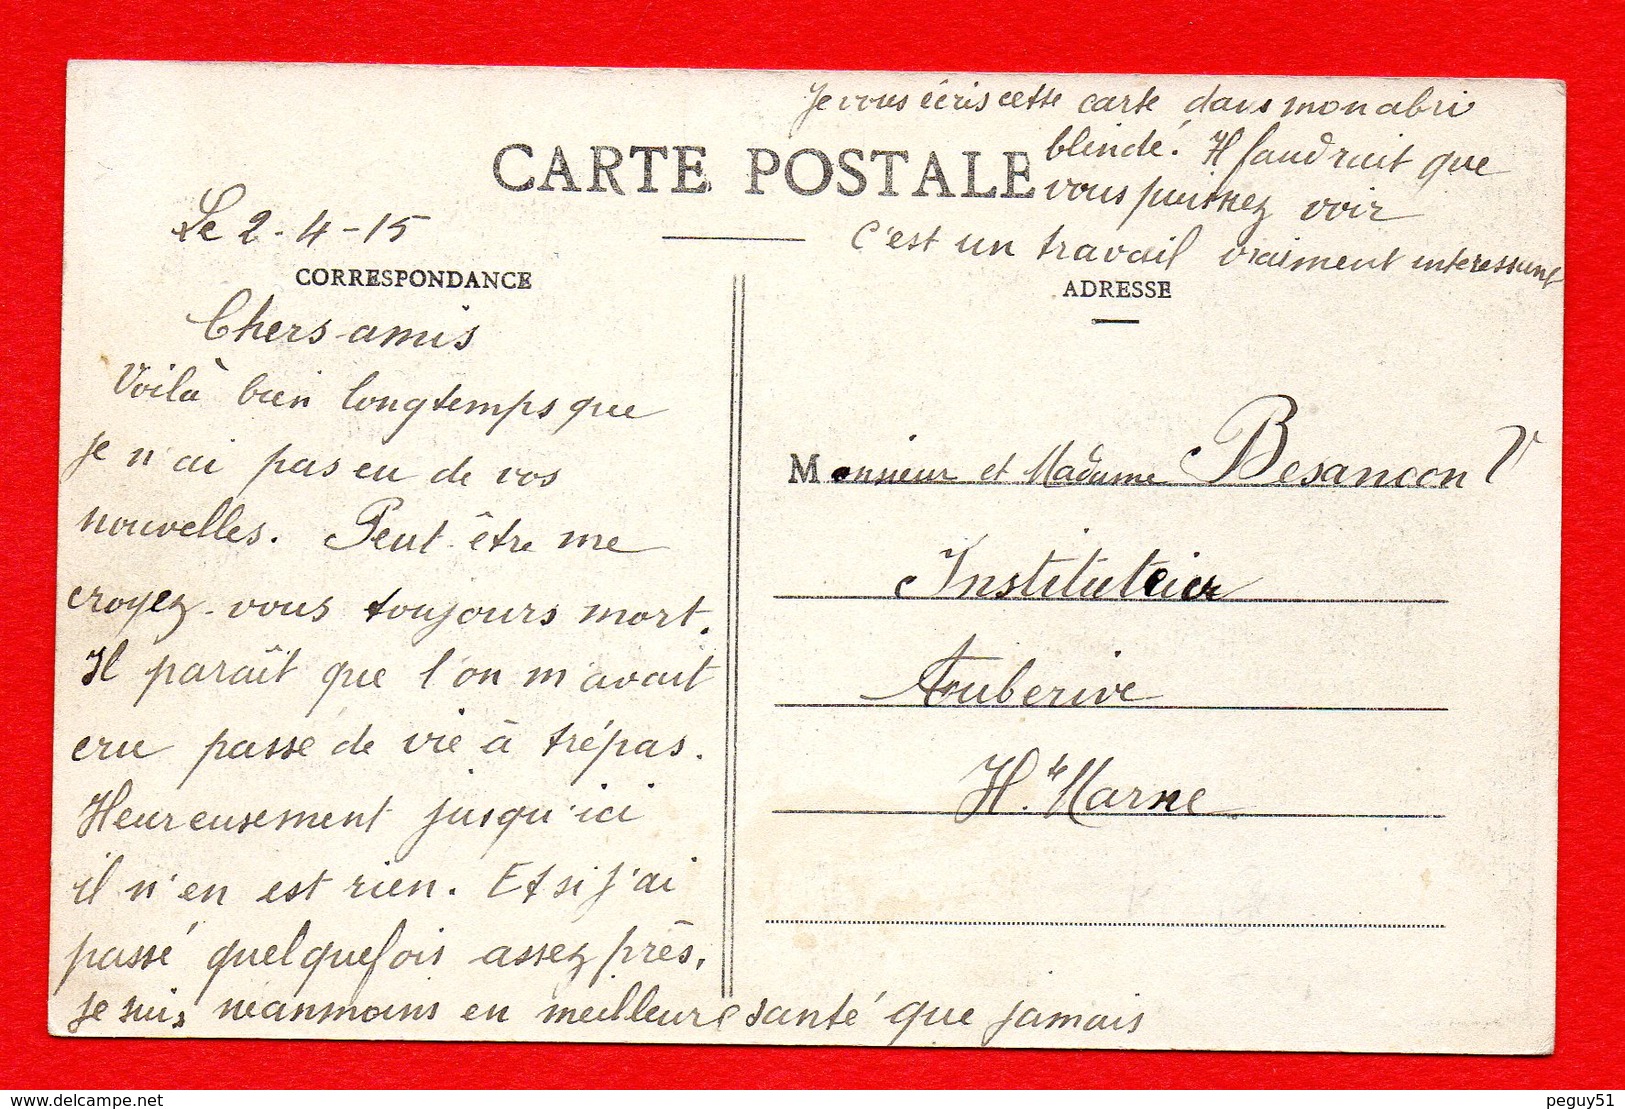 Je vous écris cette carte dans mon abri
blindé. Il faudrait que
vous puissiez voir
C'est un travail vraiment intéressant
CARTE POSTALE
Le 2-4-15
CORRESPONDANCE
Chers amis
Voilà bien longtemps que
je n'ai pas eu de vos
nouvelles. Peut-être me
croyez-vous toujours mort.
Il paraît que l'on m'avait
cru passé de vie à trépas.
Heureusement jusqu'ici
il n'en est rien. Et si j'ai
passé quelquefois assez près,
je suis néanmoins en meilleure santé que jamais
ADRESSE
Monsieur et Madame Besançon V
Instituteur
Auberive
Hte Marne
delcampe.net
peguy51